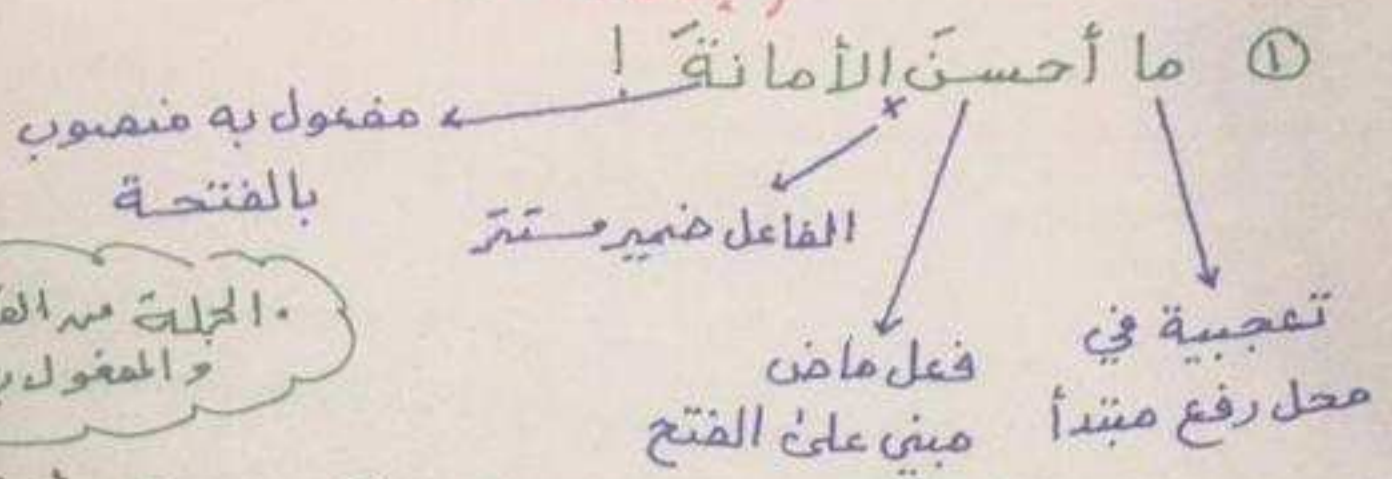 ① ما أحسنَ الأمانةَ !
مفعول به منصوب
بالفتحة
الفاعل ضمير مستتر
فعل ماض
مبني على الفتح
تعجبية في
محل رفع مبتدأ
. الجملة من
والمفعول